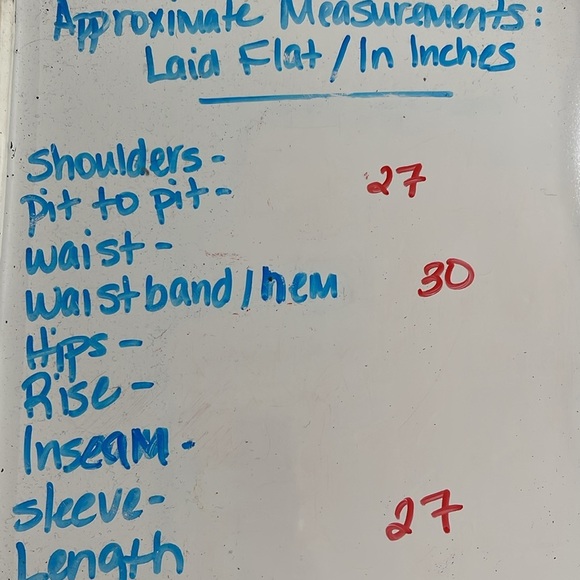 Approximate Measurements:
Laid Flat / In Inches
Shoulders -
pit to pit - 27
waist -
waistband / hem 30
Hips -
Rise -
Inseam -
sleeve - 27
Length